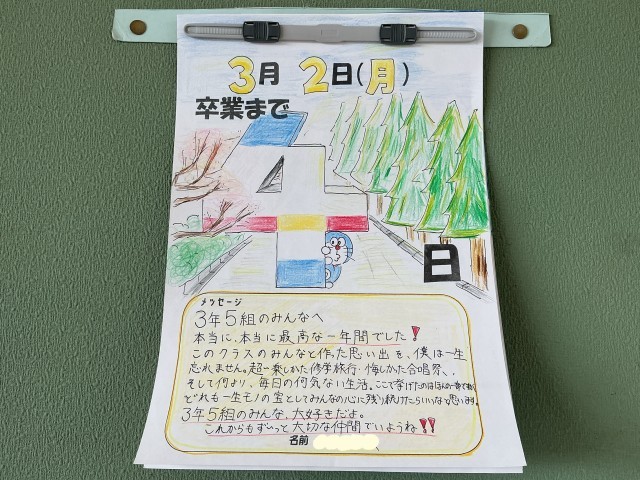 3月 2日(月)
卒業まで
4
日
メッセージ
3年5組のみんなへ
本当に、本当に最高な一年間でした!
このクラスのみんなと作った思い出を、僕は一生
忘れません。超楽しかった修学旅行・悔しかた合唱祭、
そして何より、毎日の何気ない生活。ここで挙げたのはほんの一部で
どれも一生モノの宝としてみんなの心に残り続けたらいいなと思います。
3年5組のみんな、大好きだよ。
これからもずーっと大切な仲間でいようね!!
名前